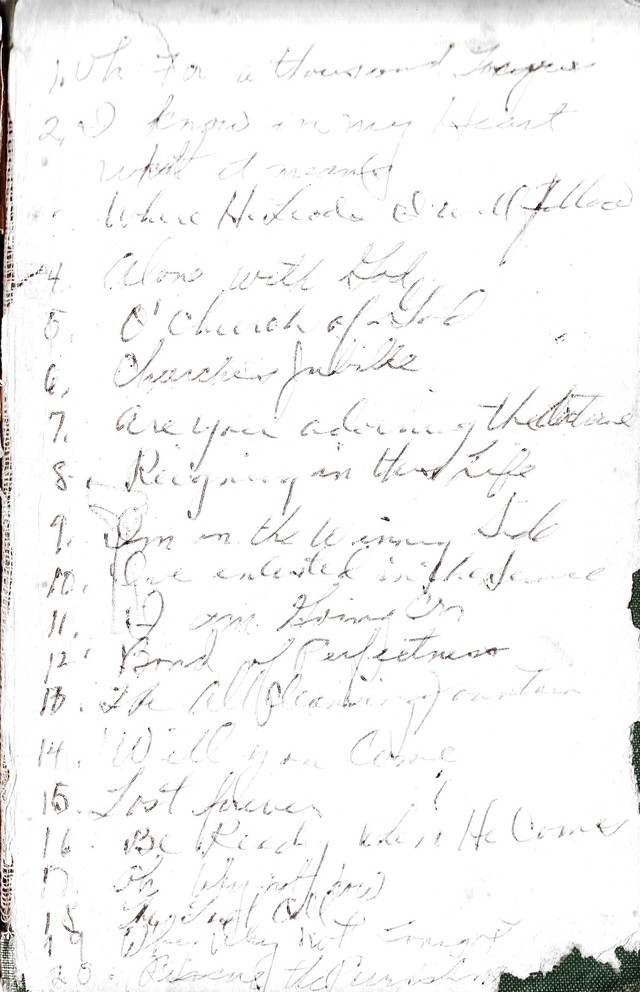 1. Oh For a thousand Tongues
2. I know in my Heart
what it means
. Where He Leads I will follow
4. Alone with God
5. O' Church of God
6. Churches Jubilee
7. Are you adorning the doctrine
8. Reigning in this Life
9. I'm on the Winning Side
10. I've enlisted in the Service
11. I am Going On
12. Bond of Perfectness
13. The All Cleansing Fountain
14. Will you Come
15. Lost forever
16 Be Ready when He Comes
17. Oh Why not now
18 The Last Call
19 Why not Tonight
20. Rescue the Perishing